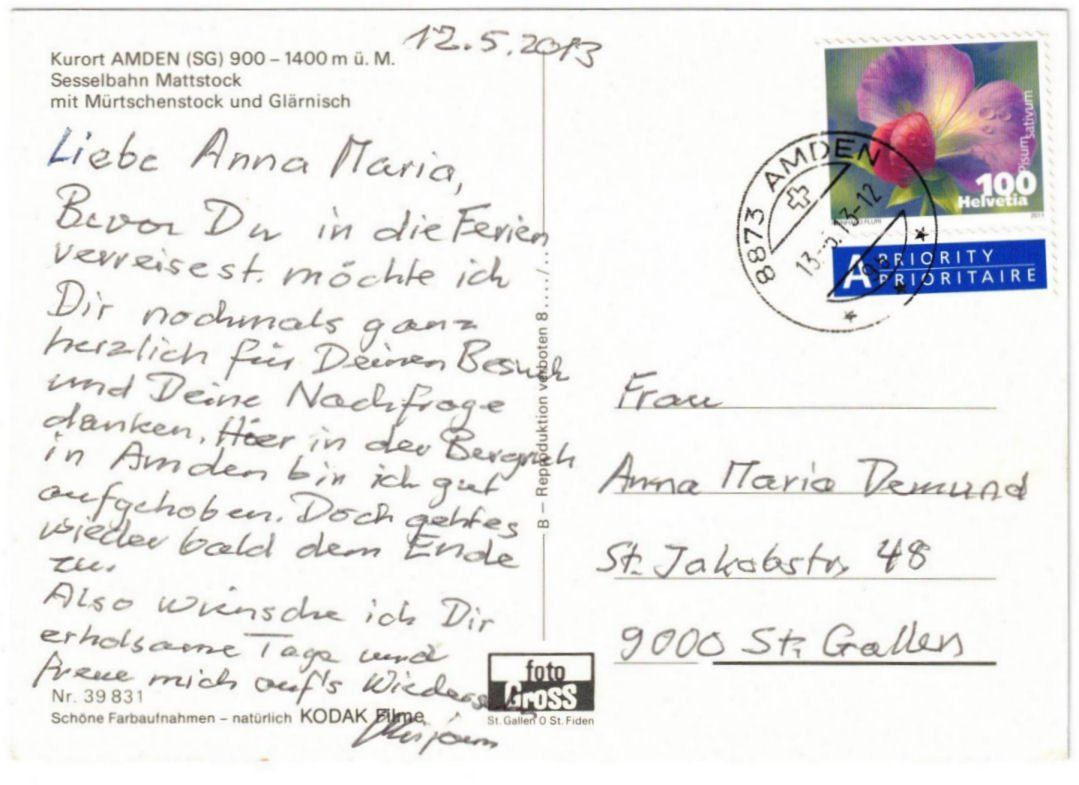 12.5.2013
Kurort AMDEN (SG) 900 – 1400 m ü. M.
Sesselbahn Mattstock
mit Mürtschenstock und Glärnisch
Liebe Anna Maria,
Bevor Du in die Ferien
verreisest. möchte ich
Dir nochmals ganz
herzlich für Deinen Besuch
und Deine Nachfrage
danken. Hier in der Bergruh
in Amden bin ich gut
aufgehoben. Doch geht es
wieder bald dem Ende
zu.
Also wünsche ich Dir
erholsame Tage und
freue mich auf's Wiedersehn
Mirjam
Nr. 39 831
Schöne Farbaufnahmen – natürlich KODAK Filme
B – Reproduktion verboten 8..../..
foto
Gross
St. Gallen O St. Fiden
Pisum sativum
100
Helvetia
2011
A PRIORITY
PRIORITAIRE
8873 AMDEN
13.-5.13-12
Frau
Anna Maria Demund
St. Jakobstr. 48
9000 St. Gallen